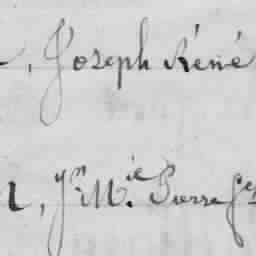 , Joseph René
, Jn M.ie Pierre